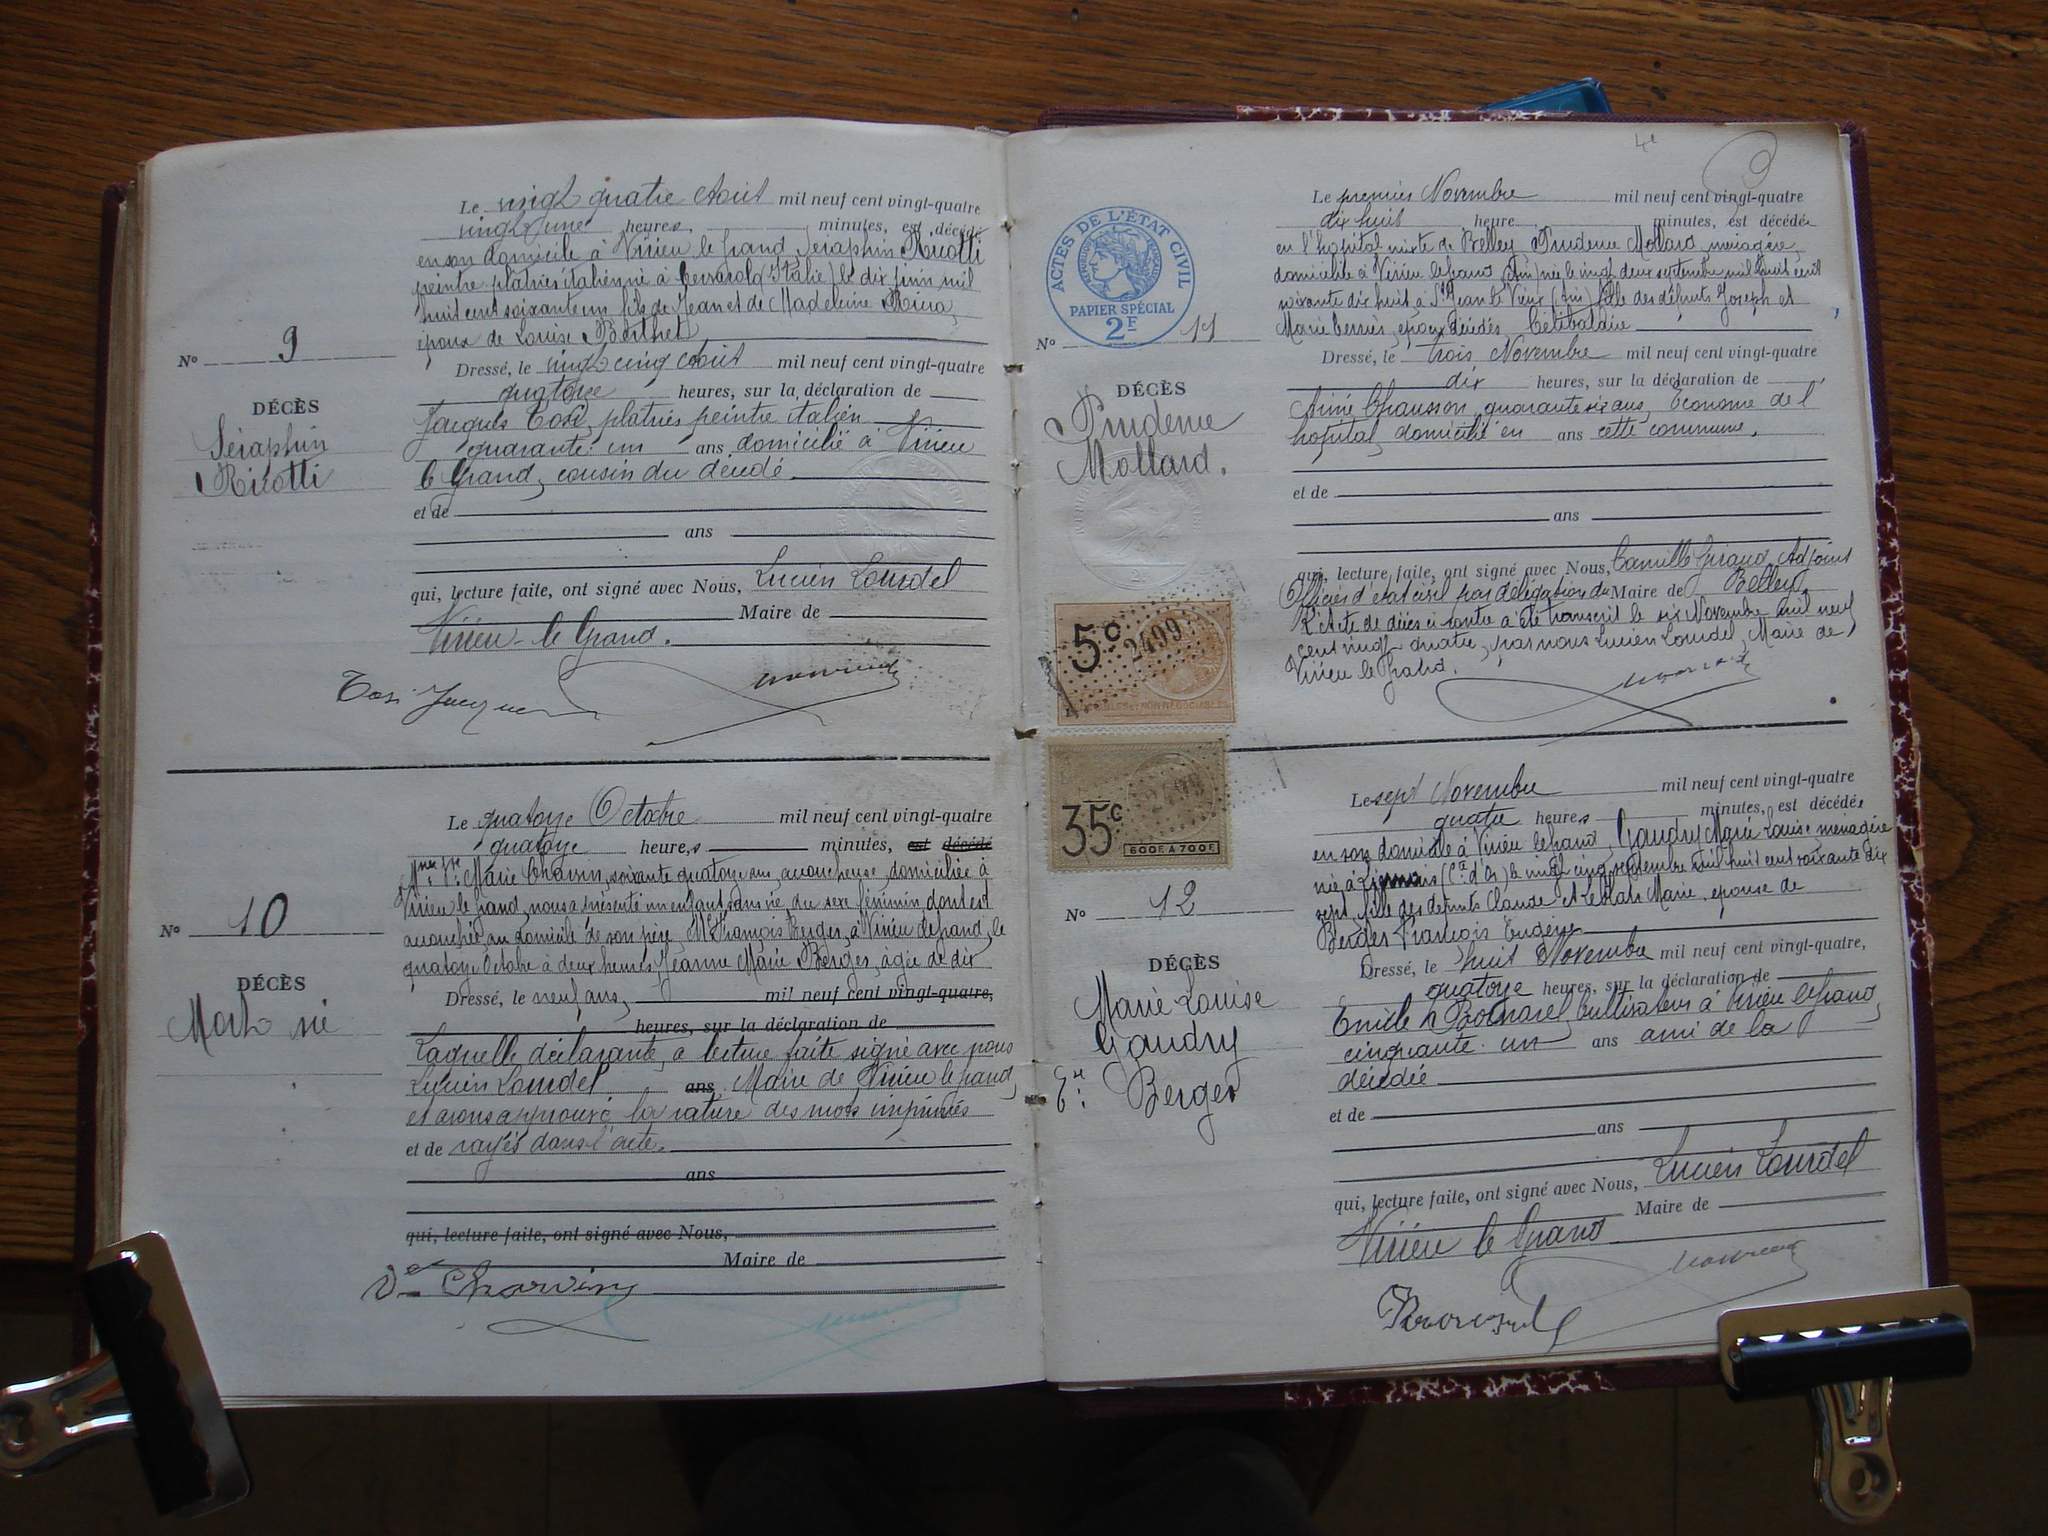 Le vingt quatre Août mil neuf cent vingt-quatre
vingt une heures, minutes, est décédé
en son domicile à Virieu le grand Séraphin Ricotti
peintre plâtrier italien né à (Italie) le dix juin mil
huit cent soixante un fils de Jean et de Madeleine
époux de Louise Berthet
N° 9
Dressé, le vingt cinq Août mil neuf cent vingt-quatre
quatorze heures, sur la déclaration de
DÉCÈS
Séraphin
Ricotti
Jacques Tosi, plâtrier peintre italien
quarante un ans domicilié à Virieu
le Grand, cousin du décédé.
et de
ans
qui, lecture faite, ont signé avec Nous, Lucien Lourdel
Maire de
Virieu-le-Grand.
Tosi Jacques
Le quatorze Octobre mil neuf cent vingt-quatre
quatorze heures minutes, est décédé
Marie Charvin, soixante quatorze ans, accoucheuse, domiciliée à
Virieu le grand, nous a présenté un enfant sans vie, du sexe féminin dont est
accouchée, au domicile de son père, Mr François Berger, à Virieu le grand, le
quatorze Octobre à deux heures Jeanne Marie Berger, âgée de dix
N° 10
DÉCÈS
Mort né
Dressé, le neuf ans, mil neuf cent vingt-quatre,
heures, sur la déclaration de
Laquelle déclarante, a lecture faite signé avec nous
Lucien Lourdel ans, Maire de Virieu le grand,
et avons approuvé la rature des mots imprimés
et de rayés dans l'acte.
ans
qui, lecture faite, ont signé avec Nous,
Maire de
Vve Charvin
4e
ACTES DE L'ÉTAT CIVIL
RÉPUBLIQUE FRANÇAISE
PAPIER SPÉCIAL
2F
Le premier Novembre mil neuf cent vingt-quatre
dix huit heure minutes, est décédée
en l'hopital mixte de Belley Prudence Mollard, ménagère,
domiciliée à Virieu le grand (Ain) née le vingt deux septembre mil huit cent
soixante dix huit à St Jean le Vieux (Ain) fille des défunts Joseph et
Marie époux décédés Célibataire
N° 11
DÉCÈS
Prudence
Mollard.
Dressé, le trois Novembre mil neuf cent vingt-quatre
dix heures, sur la déclaration de
Aimé Chausson, quarante six ans, économe de l'
hopital, domicilié en ans cette commune.
et de
ans
qui, lecture faite, ont signé avec Nous, Camille Giraud Adjoint
Officier d'état civil par délégation du Maire de Belley.
L'acte de décès ci contre a été transcrit le six Novembre mil neuf
cent vingt quatre, par nous Lucien Lourdel, Maire de
Virieu le Grand.
5c
2499
35c
2499
600F A 700F
Le sept Novembre mil neuf cent vingt-quatre
quatre heures minutes, est décédée
en son domicile à Virieu le Grand, Gaudry Marie Louise ménagère
née à (Cte d'Or) le vingt cinq septembre mil huit cent soixante dix
sept, fille des défunts Claude et Leblanc Marie, épouse de
Berger François Eugène
N° 12
DÉCÈS
Marie Louise
Gaudry
Berger
Dressé, le huit Novembre mil neuf cent vingt-quatre,
quatorze heures, sur la déclaration de
Emile Cultivateur à Virieu le grand,
cinquante un ans ami de la
décédée
et de
ans
qui, lecture faite, ont signé avec Nous, Lucien Lourdel
Maire de
Virieu le Grand